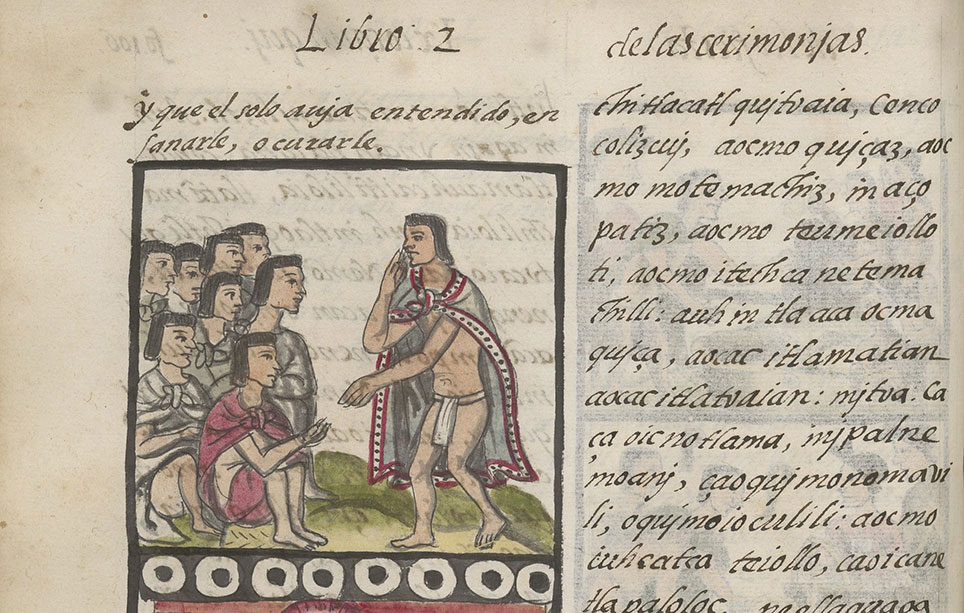 Libro 2
de las cerimonjas.
y que el solo auja entendido, en
sanarle, o curarle.
chitlacatl qujtvaia, Cenco
colizcuj, aocmo quiçaz, aoc
mo motemachiz, in aço
patiz, aocmo teumeiollo
ti, aocmo itechca netema
chilli: auh in tlaca ocma
quiça, aocac itlamatian
aoxac itlatvaian: mjtva. Ca
ça oicnotlama, in jpalne
moanj, çaoqujmonomavi
li, oqujmoioculili: aocmo
iuhcatca teiollo, caoicane
tlapaloloc